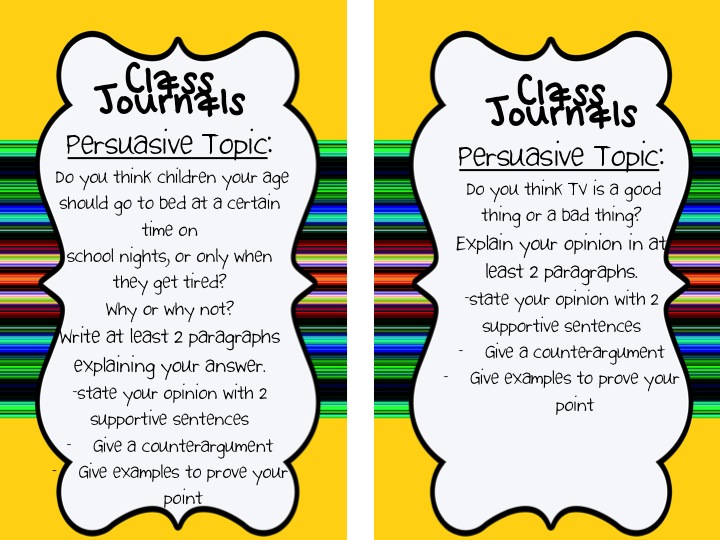 Class
Journals
Persuasive Topic:
Do you think children your age
should go to bed at a certain
time on
school nights, or only when
they get tired?
Why or why not?
Write at least 2 paragraphs
explaining your answer.
-state your opinion with 2
supportive sentences
- Give a counterargument
- Give examples to prove your
point
Class
Journals
Persuasive Topic:
Do you think TV is a good
thing or a bad thing?
Explain your opinion in at
least 2 paragraphs.
-state your opinion with 2
supportive sentences
- Give a counterargument
- Give examples to prove your
point